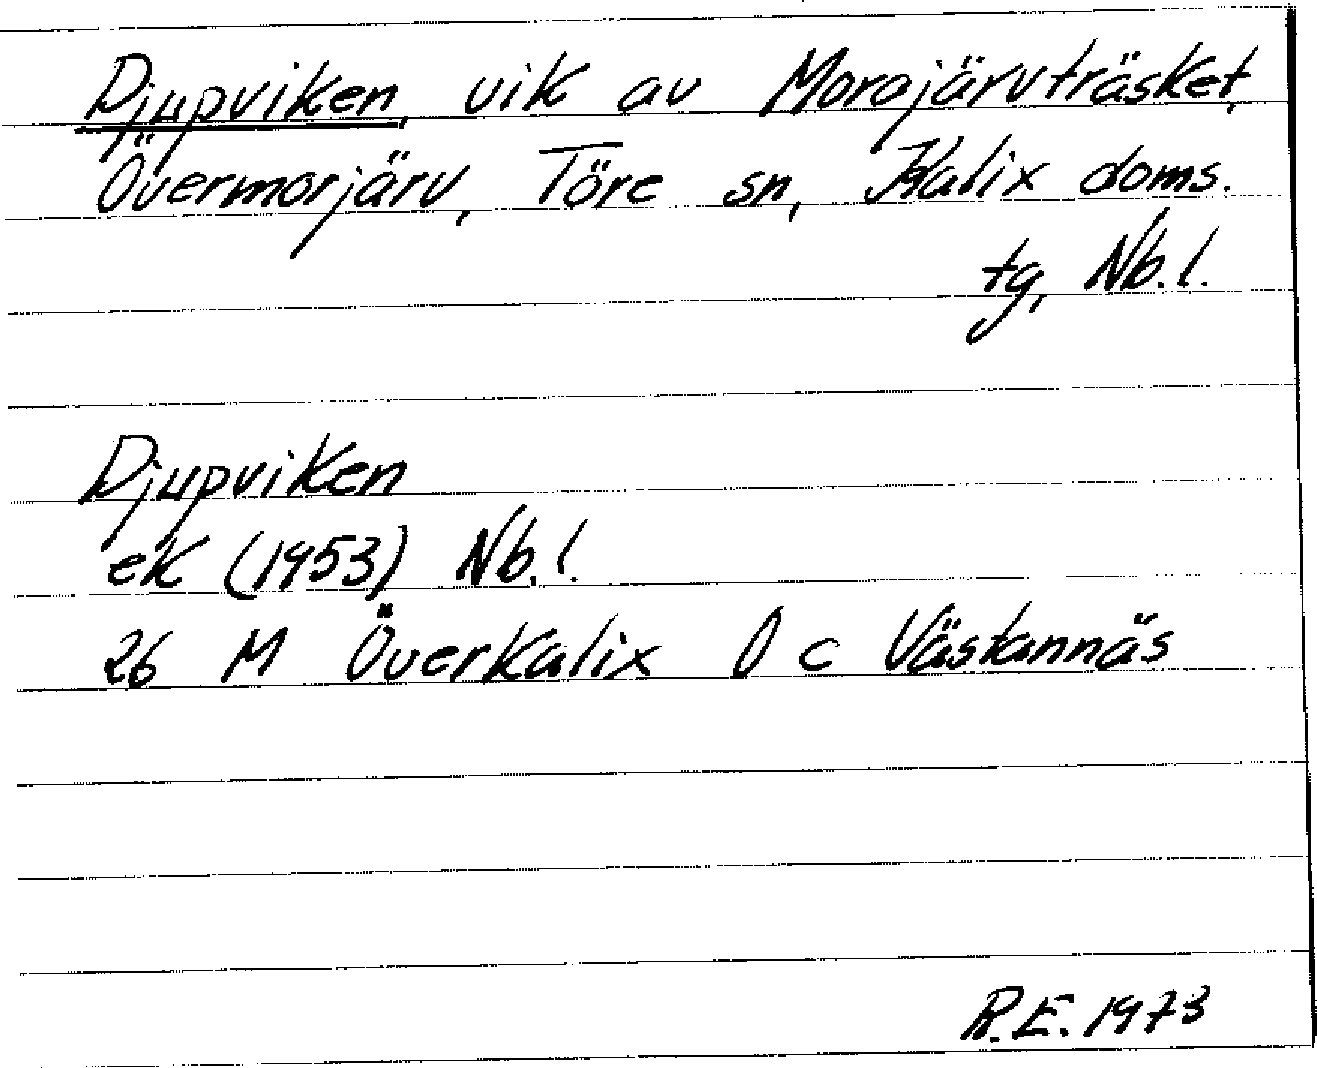 Djupviken, vik av Morojärvträsket,
Övermorjärv, Töre sn, Kalix doms.
tg, Nb.l.
Djupviken
ek (1953) Nb.l.
26 M Överkalix 0 c Västannäs
R.E. 1973